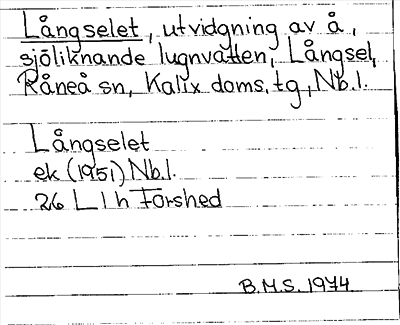 Långselet, utvidgning av å,
sjöliknande lugnvatten, Långsel,
Råneå sn, Kalix doms. tg, Nb.l.
Långselet
ek (1951) Nb.l.
26 L l h Forshed
B.M.S. 1974